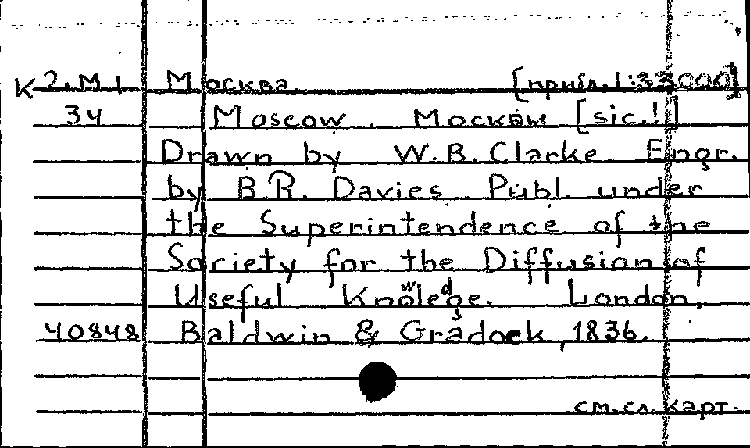 К 2.М 1 Москва. [прибл. 1:33000]
34 Moscow. Москвы [sic.!]
Drawn by W.B. Clarke Engr.
by B.R. Davies Publ. under
the Superintendence of the
Society for the Diffusion of
Useful Knowledge. London,
40848 Baldwin & Gradock, 1836.
см. сл. карт.